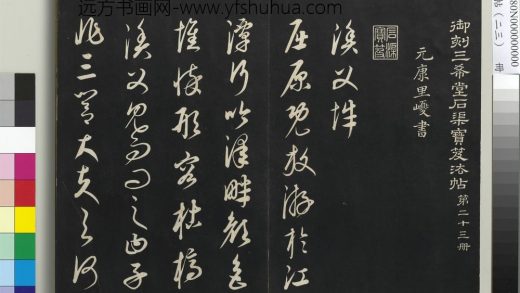 远方书画网- www.yfshuhua.com
御刻三希堂石渠寶笈法帖 第二十三冊
元康里巎書
石渠寶笈
漁父辭
屈原既放游於江
潭行吟澤畔顏色
憔悴形容枯槁
漁父見而問之曰子
非三閭大夫與何
80N000000000
帖(二三)